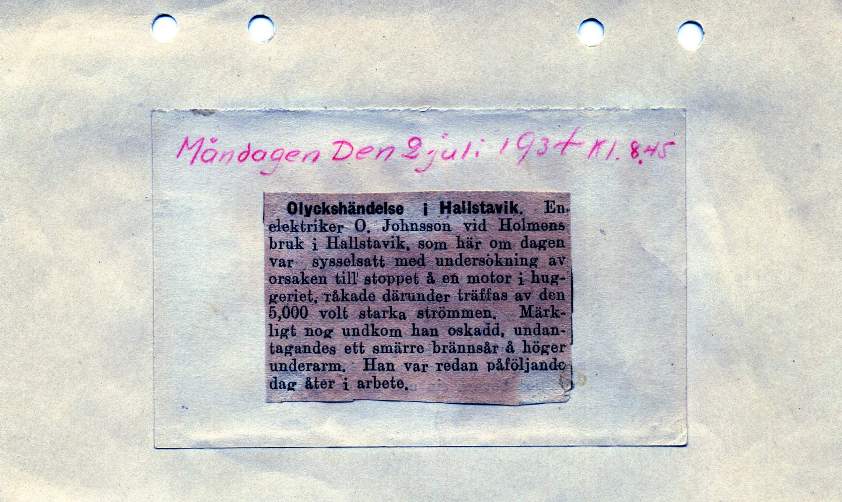 Måndagen Den 2 juli 1934 Kl. 8,45
Olyckshändelse i Hallstavik. En
elektriker O. Johnsson vid Holmens
bruk i Hallstavik, som här om dagen
var sysselsatt med undersökning av
orsaken till stoppet å en motor i hug-
geriet, råkade därunder träffas av den
5,000 volt starka strömmen. Märk-
ligt nog undkom han oskadd, undan-
tagandes ett smärre brännsår å höger
underarm. Han var redan påföljande
dag åter i arbete.